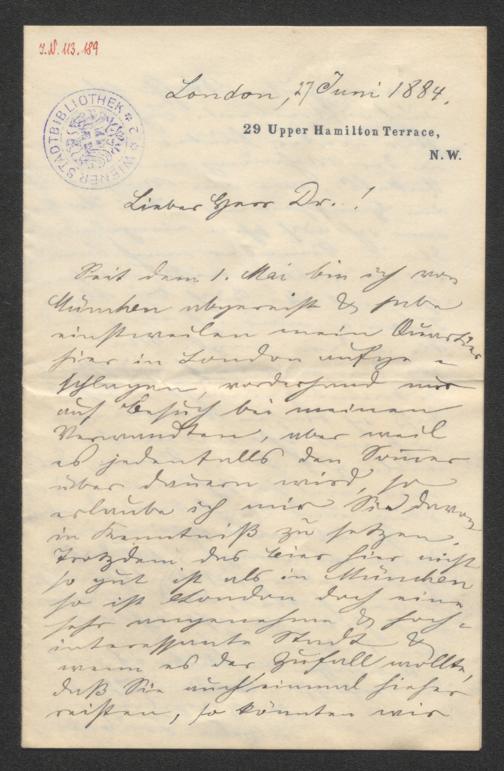 J.N. 113.189
WIENER STADTBIBLIOTHEK
London, 27 Juni 1884.
29 Upper Hamilton Terrace,
N.W.
Lieber Herr Dr.!
Seit dem 1. Mai bin ich von
München abgereist & habe
einstweilen mein Quartier
hier in London aufge=
schlagen, vorderhand nur
auf Besuch bei meinen
Verwandten, aber weil
es jedenfalls den Som̄er
über dauern wird, so
erlaube ich mir Sie davon
in Kenntniß zu setzen.
Trotzdem das Bier hier nicht
so gut ist als in München
so ist London doch eine
sehr angenehme & hoch=
interessante Stadt &
wenn es der Zufall wollte,
daß Sie auch einmal hieher
reisten, so könnten wir